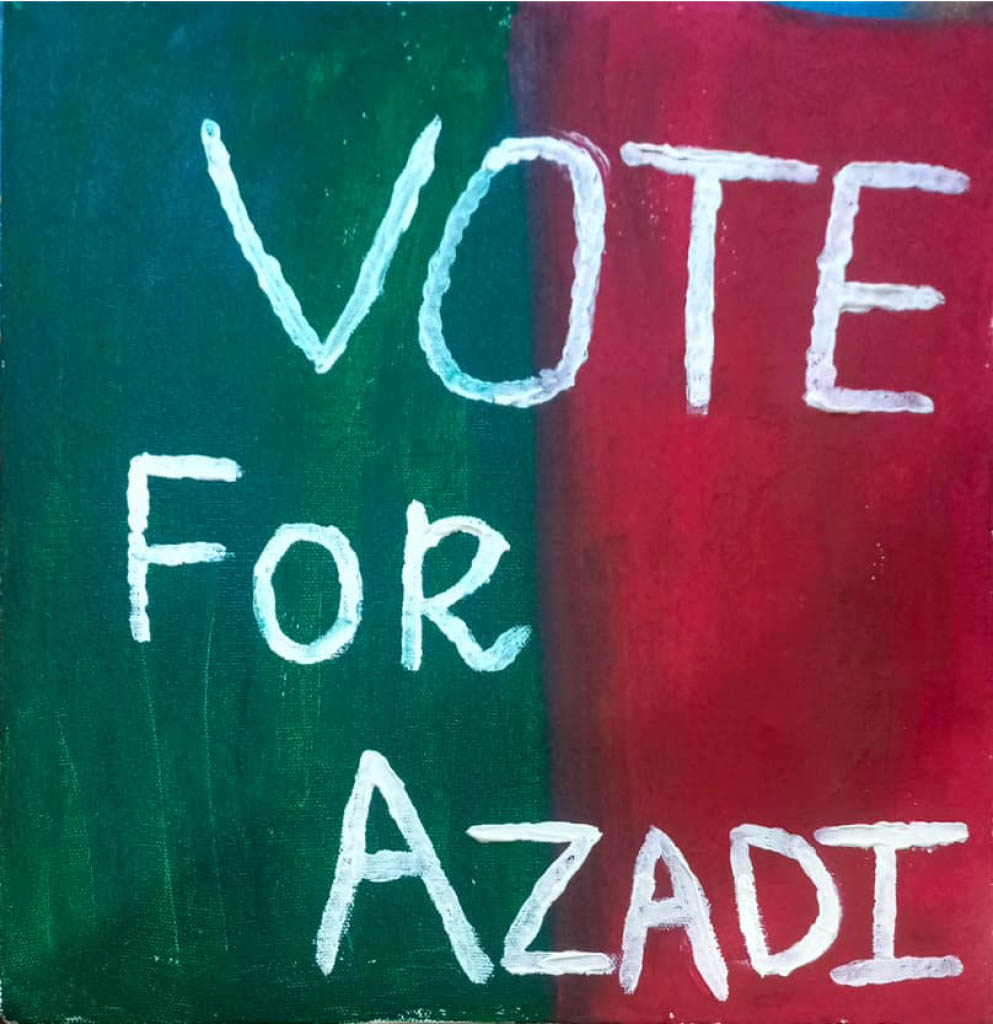 VOTE
FOR
AZADI